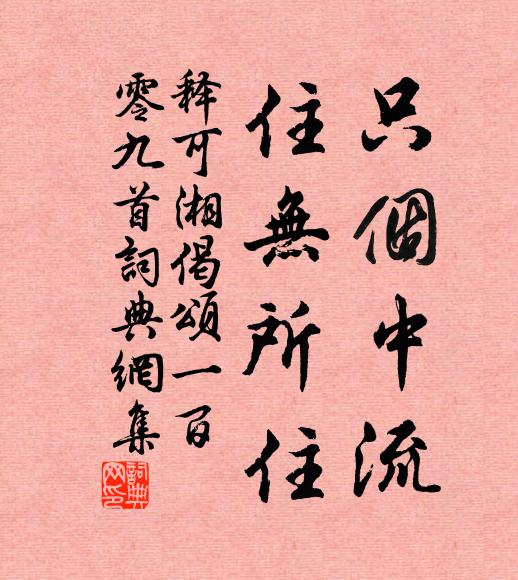 只個中流
住無所住
释可湘偈頌一百
零九首詞典網集
詞典网印